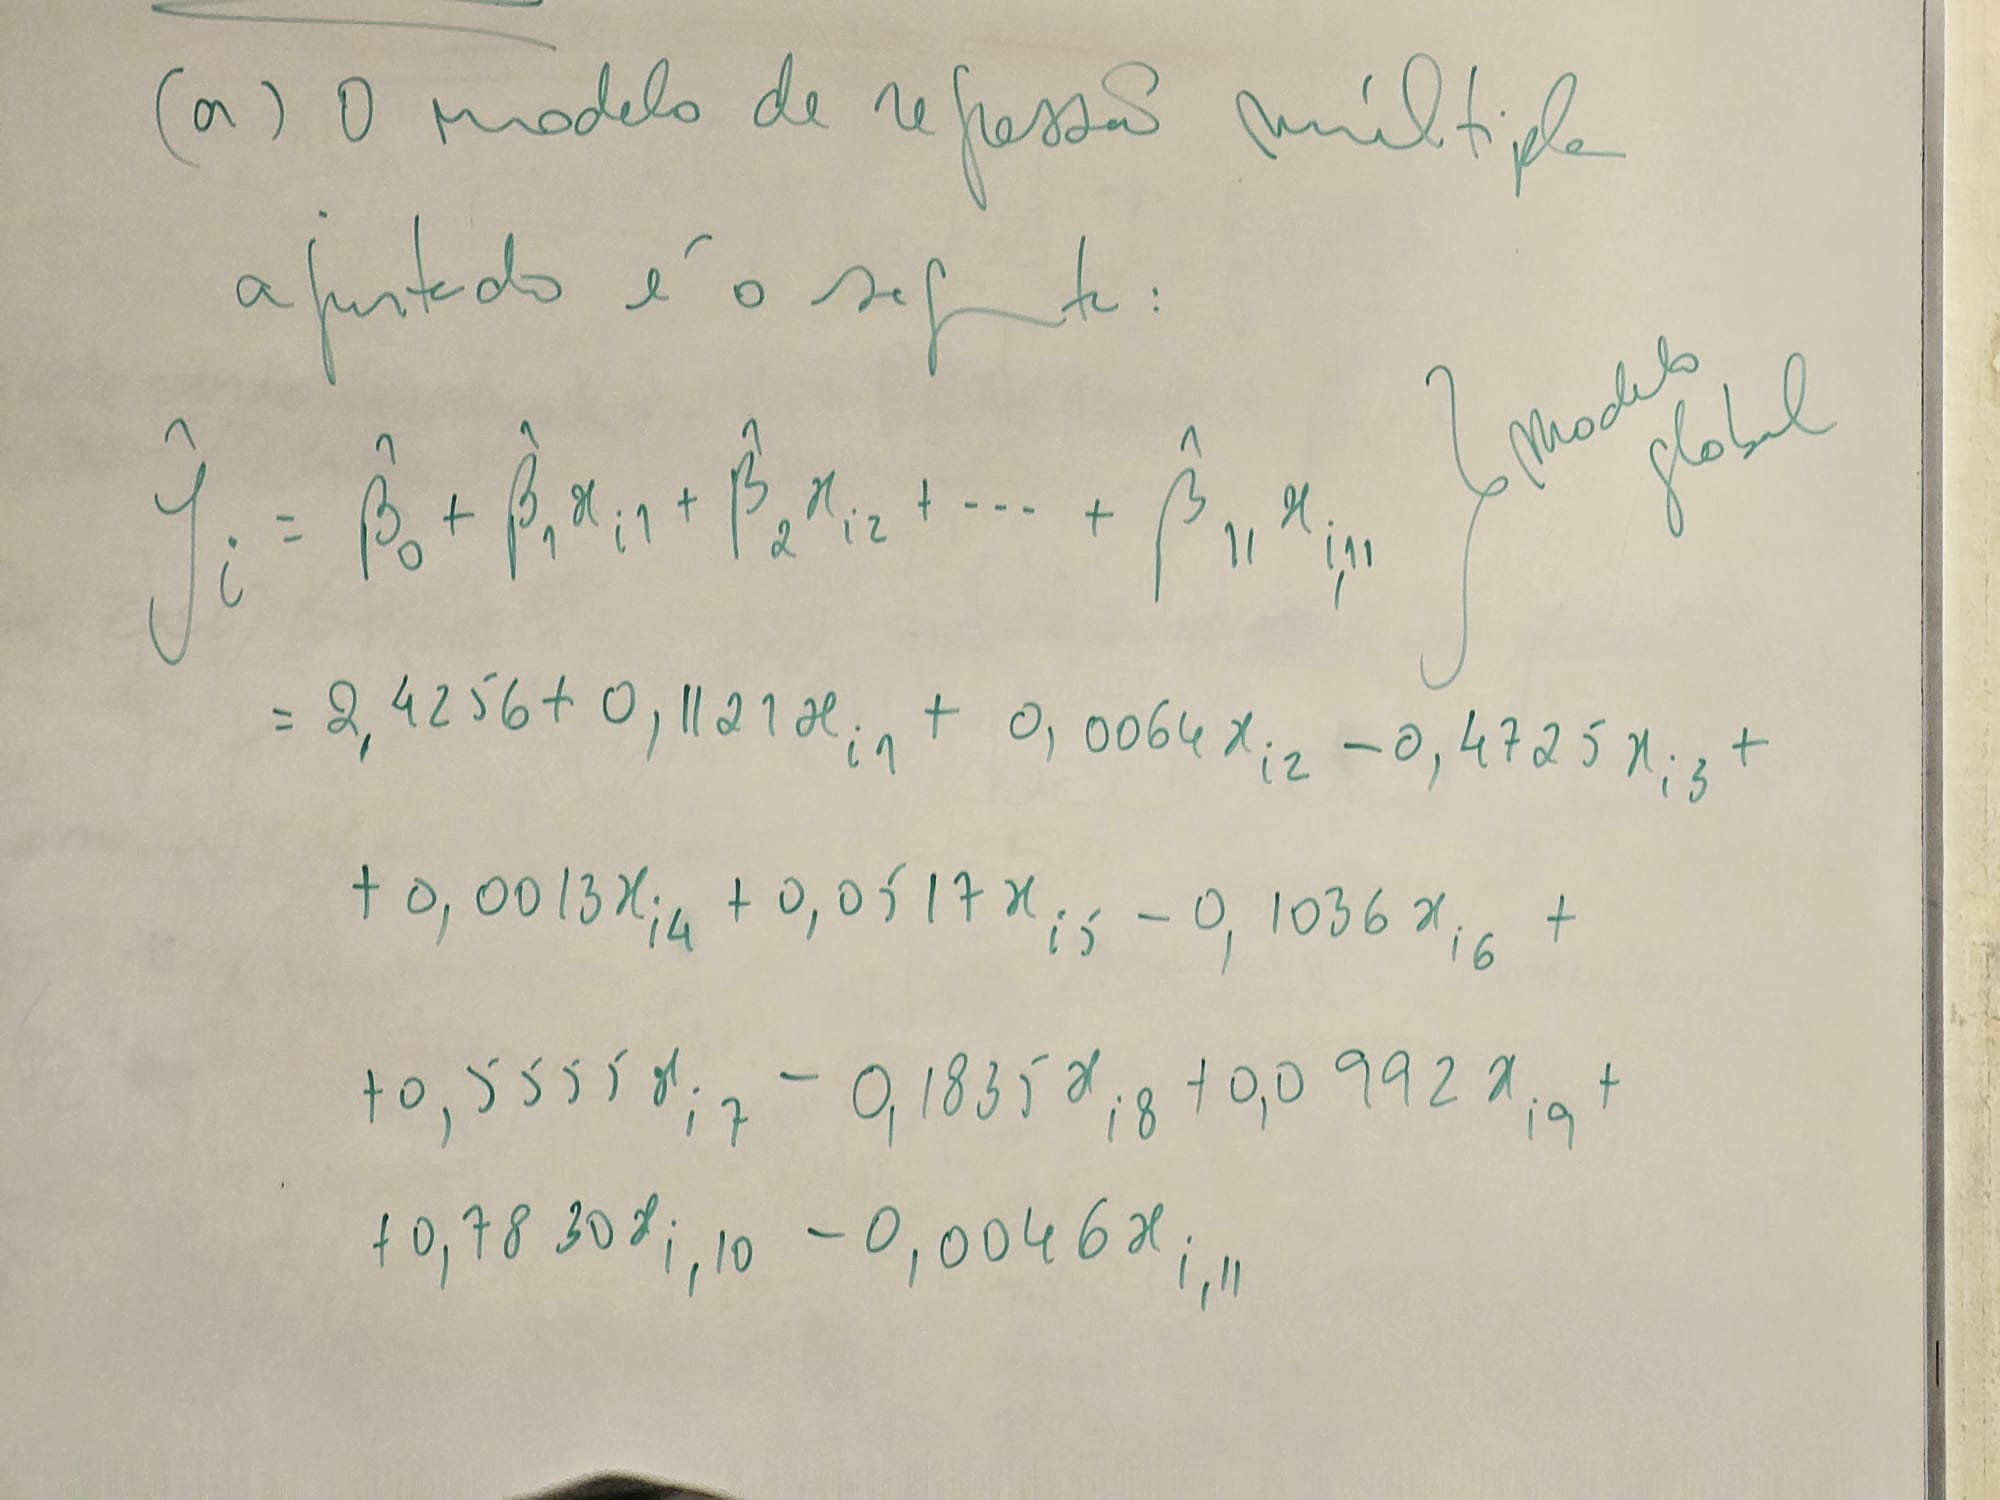 (a) O modelo de regressão múltipla
ajustado é o seguinte:
ŷᵢ = β̂₀ + β̂₁xᵢ₁ + β̂₂xᵢ₂ + --- + β̂₁₁xᵢ,₁₁ } modelo global
= 2,4256 + 0,1121xᵢ₁ + 0,0064xᵢ₂ - 0,4725xᵢ₃ +
+ 0,0013xᵢ₄ + 0,0517xᵢ₅ - 0,1036xᵢ₆ +
+ 0,5555xᵢ₇ - 0,1835xᵢ₈ + 0,0992xᵢ₉ +
+ 0,7830xᵢ,₁₀ - 0,0046xᵢ,₁₁